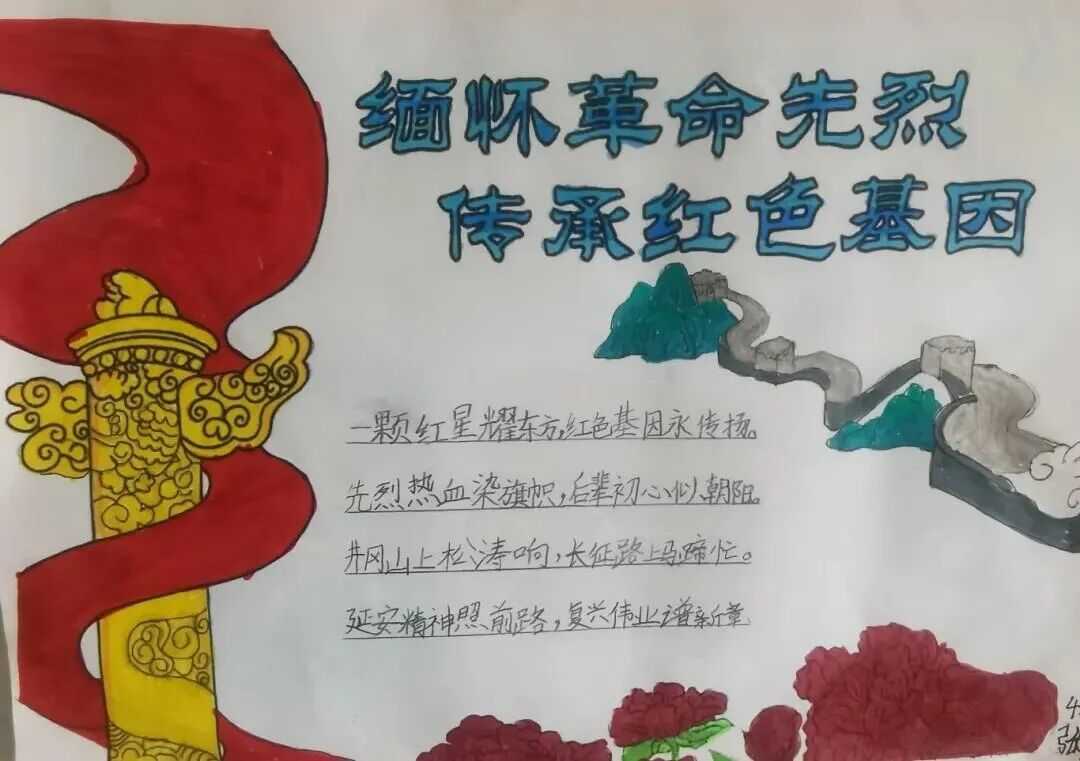 缅怀革命先烈
传承红色基因
一颗红星耀东方,红色基因永传扬。
先烈热血染旗帜,后辈初心似朝阳。
井冈山上松涛响,长征路上马蹄忙。
延安精神照前路,复兴伟业谱新章
张